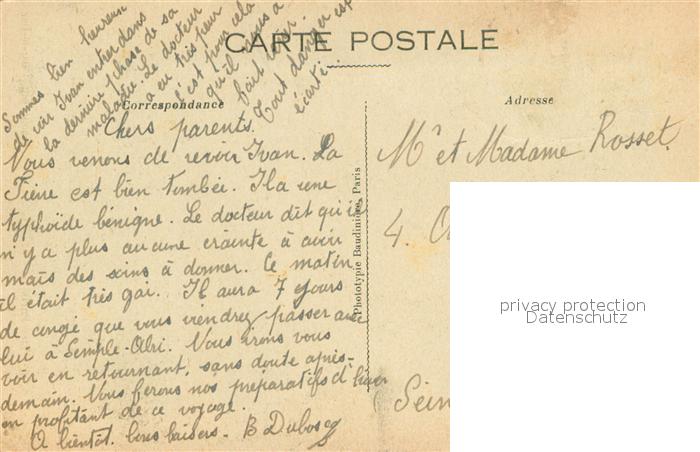 CARTE POSTALE
Correspondance
Adresse
Sommes bien heureux
de voir Ivan entrer dans
la dernière phase de sa
maladie. Le docteur
a eu très peur
c'est pour cela
qu'il nous a
fait venir.
Tout danger est
écarté.
Chers parents.
Nous venons de revoir Ivan. La
Fièvre est bien tombée. Il a une
typhoïde bénigne. Le docteur dit qu'il
n'y a plus aucune crainte à avoir
mais des soins à donner. Ce matin
il était très gai. Il aura 7 jours
de congé que vous viendrez passer avec
lui à. Nous irons vous
voir en retournant, sans doute après-
demain. Nous ferons nos préparatifs d'hiver
en profitant de ce voyage.
A bientôt. bons baisers. B Duboscq
Phototypie Baudinière, Paris
Mr et Madame Rosset,
4.
Sein
privacy protection
Datenschutz